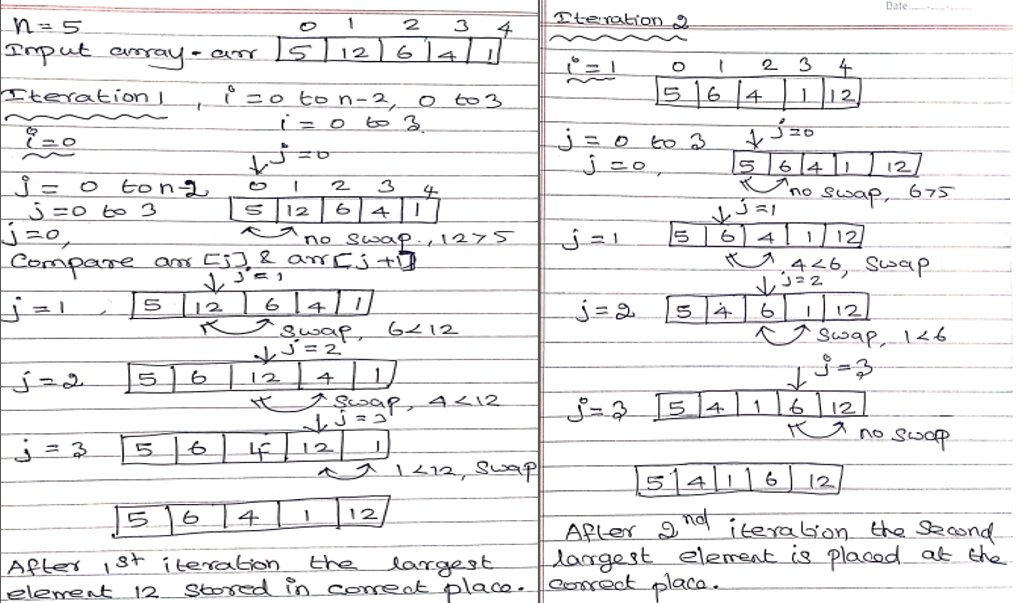 n=5
0 1 2 3 4
Input array - arr 5 12 6 4 1
Iteration 1, i=0 to n-2, 0 to 3
i = 0 to 3
i=0
j=0
j = 0 to n-2 0 1 2 3 4
j=0 to 3 5 12 6 4 1
j=0, no swap., 12>5
Compare arr[j] & arr[j+1]
j=1
j=1, 5 12 6 4 1
swap, 6<12
j=2
j=2 5 6 12 4 1
swap, 4<12
j=3
j=3 5 6 4 12 1
1<12, swap
5 6 4 1 12
After 1st iteration the largest
element 12 stored in correct place.
Date
Iteration 2
i=1 0 1 2 3 4
5 6 4 1 12
j = 0 to 3 j=0
j=0, 5 6 4 1 12
no swap, 6>5
j=1
j=1 5 6 4 1 12
4<6, swap
j=2
j=2 5 4 6 1 12
swap, 1<6
j=3
j=3 5 4 1 6 12
no swap
5 4 1 6 12
After 2nd iteration the second
largest element is placed at the
correct place.